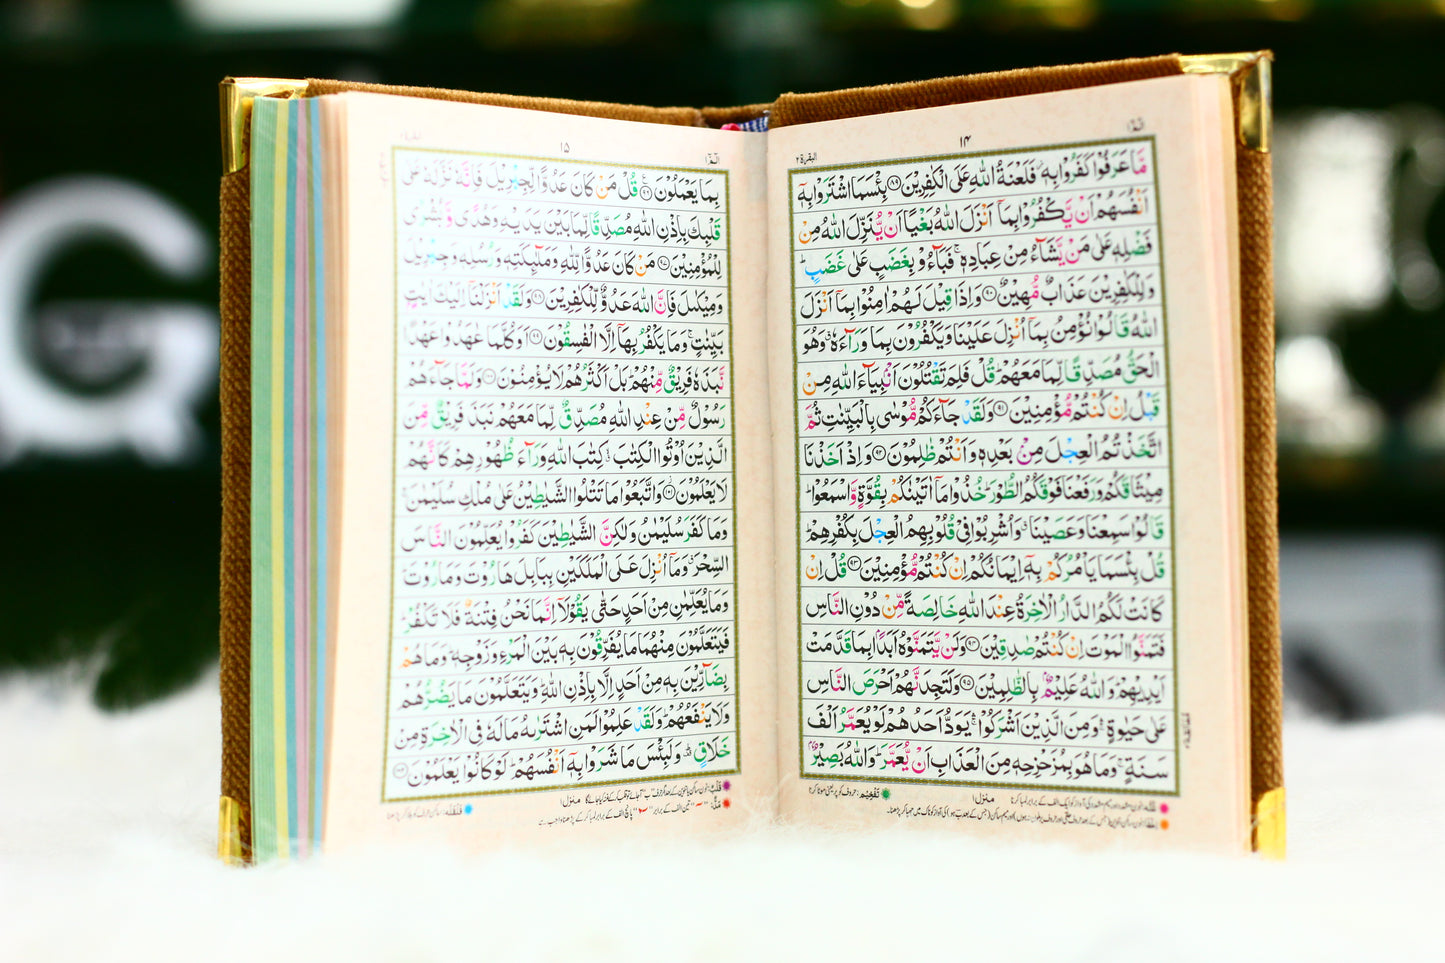 الٓمّٓ ١
١٤
البقرة ٢
مَّا عَرَفُوْا كَفَرُوْا بِهٖ٘ فَلَعْنَةُ اللّٰهِ عَلَى الْكٰفِرِيْنَ ٨٩ بِئْسَمَا اشْتَرَوْا بِهٖٓ
اَنْفُسَهُمْ اَنْ يَّكْفُرُوْا بِمَآ اَنْزَلَ اللّٰهُ بَغْيًا اَنْ يُّنَزِّلَ اللّٰهُ مِنْ
فَضْلِهٖ عَلٰى مَنْ يَّشَآءُ مِنْ عِبَادِهٖ ۚ فَبَآءُوْ بِغَضَبٍ عَلٰى غَضَبٍ ؕ
وَلِلْكٰفِرِيْنَ عَذَابٌ مُّهِيْنٌ ٩٠ وَاِذَا قِيْلَ لَهُمْ اٰمِنُوْا بِمَآ اَنْزَلَ
اللّٰهُ قَالُوْا نُؤْمِنُ بِمَآ اُنْزِلَ عَلَيْنَا وَيَكْفُرُوْنَ بِمَا وَرَآءَهٗ ۗ وَهُوَ
الْحَقُّ مُصَدِّقًا لِّمَا مَعَهُمْ ؕ قُلْ فَلِمَ تَقْتُلُوْنَ اَنْۢبِيَآءَ اللّٰهِ مِنْ
قَبْلُ اِنْ كُنْتُمْ مُّؤْمِنِيْنَ ٩١ وَلَقَدْ جَآءَكُمْ مُّوْسٰى بِالْبَيِّنٰتِ ثُمَّ
اتَّخَذْتُمُ الْعِجْلَ مِنْۢ بَعْدِهٖ وَاَنْتُمْ ظٰلِمُوْنَ ٩٢ وَاِذْ اَخَذْنَا
مِيْثَاقَكُمْ وَرَفَعْنَا فَوْقَكُمُ الطُّوْرَ ؕ خُذُوْا مَآ اٰتَيْنٰكُمْ بِقُوَّةٍ وَّاسْمَعُوْا ؕ
قَالُوْا سَمِعْنَا وَعَصَيْنَا ۗ وَاُشْرِبُوْا فِيْ قُلُوْبِهِمُ الْعِجْلَ بِكُفْرِهِمْ ؕ
قُلْ بِئْسَمَا يَاْمُرُكُمْ بِهٖٓ اِيْمَانُكُمْ اِنْ كُنْتُمْ مُّؤْمِنِيْنَ ٩٣ قُلْ اِنْ
كَانَتْ لَكُمُ الدَّارُ الْاٰخِرَةُ عِنْدَ اللّٰهِ خَالِصَةً مِّنْ دُوْنِ النَّاسِ
فَتَمَنَّوُا الْمَوْتَ اِنْ كُنْتُمْ صٰدِقِيْنَ ٩٤ وَلَنْ يَّتَمَنَّوْهُ اَبَدًۢا بِمَا قَدَّمَتْ
اَيْدِيْهِمْ ؕ وَاللّٰهُ عَلِيْمٌۢ بِالظّٰلِمِيْنَ ٩٥ وَلَتَجِدَنَّهُمْ اَحْرَصَ النَّاسِ
عَلٰى حَيٰوةٍ ۚ وَمِنَ الَّذِيْنَ اَشْرَكُوْا ۚ يَوَدُّ اَحَدُهُمْ لَوْ يُعَمَّرُ اَلْفَ
سَنَةٍ ۚ وَمَا هُوَ بِمُزَحْزِحِهٖ مِنَ الْعَذَابِ اَنْ يُّعَمَّرَ ؕ وَاللّٰهُ بَصِيْرٌۢ
منزل ١
الٓمّٓ ١
١٥
بِمَا يَعْمَلُوْنَ ٩٦ قُلْ مَنْ كَانَ عَدُوًّا لِّجِبْرِيْلَ فَاِنَّهٗ نَزَّلَهٗ عَلٰى
قَلْبِكَ بِاِذْنِ اللّٰهِ مُصَدِّقًا لِّمَا بَيْنَ يَدَيْهِ وَهُدًى وَّبُشْرٰى
لِلْمُؤْمِنِيْنَ ٩٧ مَنْ كَانَ عَدُوًّا لِّلّٰهِ وَمَلٰٓئِكَتِهٖ وَرُسُلِهٖ وَجِبْرِيْلَ
وَمِيْكٰىلَ فَاِنَّ اللّٰهَ عَدُوٌّ لِّلْكٰفِرِيْنَ ٩٨ وَلَقَدْ اَنْزَلْنَآ اِلَيْكَ اٰيٰتٍۭ
بَيِّنٰتٍ ۚ وَمَا يَكْفُرُ بِهَآ اِلَّا الْفٰسِقُوْنَ ٩٩ اَوَكُلَّمَا عٰهَدُوْا عَهْدًا
نَّبَذَهٗ فَرِيْقٌ مِّنْهُمْ ؕ بَلْ اَكْثَرُهُمْ لَا يُؤْمِنُوْنَ ١٠٠ وَلَمَّا جَآءَهُمْ
رَسُوْلٌ مِّنْ عِنْدِ اللّٰهِ مُصَدِّقٌ لِّمَا مَعَهُمْ نَبَذَ فَرِيْقٌ مِّنَ
الَّذِيْنَ اُوْتُوا الْكِتٰبَ ۙ كِتٰبَ اللّٰهِ وَرَآءَ ظُهُوْرِهِمْ كَاَنَّهُمْ
لَا يَعْلَمُوْنَ ١٠١ وَاتَّبَعُوْا مَا تَتْلُوا الشَّيٰطِيْنُ عَلٰى مُلْكِ سُلَيْمٰنَ ۚ
وَمَا كَفَرَ سُلَيْمٰنُ وَلٰكِنَّ الشَّيٰطِيْنَ كَفَرُوْا يُعَلِّمُوْنَ النَّاسَ
السِّحْرَ ۗ وَمَآ اُنْزِلَ عَلَى الْمَلَكَيْنِ بِبَابِلَ هَارُوْتَ وَمَارُوْتَ ؕ
وَمَا يُعَلِّمٰنِ مِنْ اَحَدٍ حَتّٰى يَقُوْلَآ اِنَّمَا نَحْنُ فِتْنَةٌ فَلَا تَكْفُرْ ؕ
فَيَتَعَلَّمُوْنَ مِنْهُمَا مَا يُفَرِّقُوْنَ بِهٖ بَيْنَ الْمَرْءِ وَزَوْجِهٖ ؕ وَمَا هُمْ
بِضَآرِّيْنَ بِهٖ مِنْ اَحَدٍ اِلَّا بِاِذْنِ اللّٰهِ ؕ وَيَتَعَلَّمُوْنَ مَا يَضُرُّهُمْ
وَلَا يَنْفَعُهُمْ ؕ وَلَقَدْ عَلِمُوْا لَمَنِ اشْتَرٰىهُ مَا لَهٗ فِي الْاٰخِرَةِ مِنْ
خَلَاقٍ ؕ۫ وَلَبِئْسَ مَا شَرَوْا بِهٖٓ اَنْفُسَهُمْ ؕ لَوْ كَانُوْا يَعْلَمُوْنَ ١٠٢
منزل ١
G